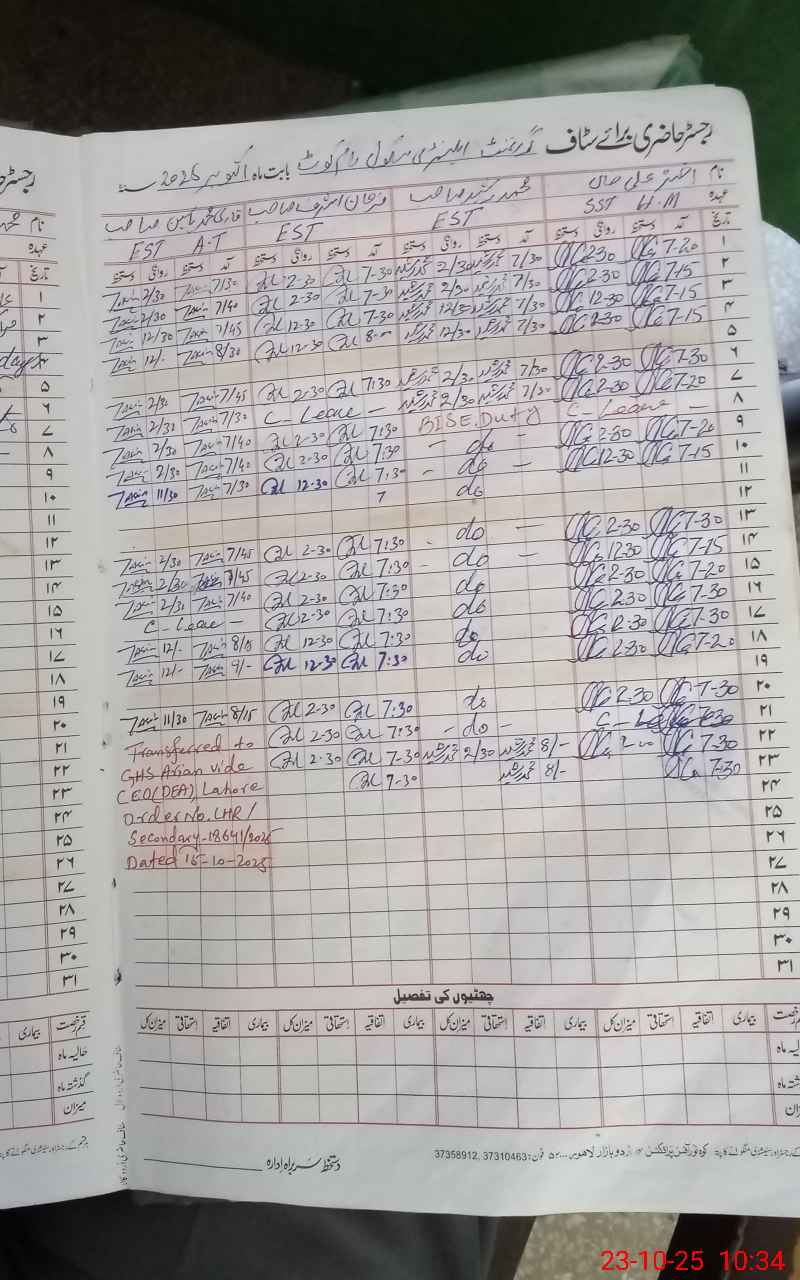 رجسٹر حاضری برائے سٹاف گورنمنٹ ایلیمنٹری سکول رام کوٹ بابت ماہ اکتوبر 2025 سنہ
نام اصغر علی صاحب فرحان اشرف صاحب قاری محمد یاسین صاحب
عہدہ SST H.M EST EST EST A.T
تاریخ آمد دستخط روانگی دستخط آمد دستخط روانگی دستخط آمد دستخط روانگی دستخط آمد دستخط روانگی دستخط
۱ 7-20 2-30 7/30 2/30 7-30 2-30 7/30 2/30
۲ 7-15 2-30 7/30 2/30 7-30 2-30 7/40 2/30
۳ 7-15 12-30 7/30 12/30 7-30 12-30 7/45 12/30
۴ 7-15 2-30 7/30 12/30 8-00 12-30 8/30 12/-
۵
۶ 7-30 2-30 7/30 2/30 7:30 2-30 7/45 2/30
۷ 7-20 2-30 7/30 2/30 C-Leave - 7/30 2/30
۸ C-Leave - BISE.Duty 7:30 2-30 7/40 2/30
۹ 7-20 2-30 - do - 7:30 2-30 7/40 2/30
۱۰ 7-15 12-30 - do - 7:30 12-30 7/30 11/30
۱۱ do 7
۱۲
۱۳ 7-30 2-30 - do - 7:30 2-30 7/45 2/30
۱۴ 7-15 12-30 - do - 7:30 2-30 7/45 2/30
۱۵ 7-20 2-30 do 7:30 2-30 7/40 2/30
۱۶ 7-30 2-30 do 7:30 2-30 C-Leave -
۱۷ 7-30 do 7:30 12-30 12/-
۱۸ 7-20 2-30 do 7:30 12-30 9/- 12/-
۱۹
۲۰ 7-30 2-30 do 7:30 2-30 8/15 11/30
۲۱ - do - 7:30 2-30 Transferred to
۲۲ 7-30 8/- 2/30 7-30 2-30 GHS Arian vide
۲۳ 7-30 8/- 7-30 CEO(DEA), Lahore
۲۴ Order No. LHR/
۲۵ Secondary-18641/2025
۲۶ Dated 15-10-2025
۲۷
۲۸
۲۹
۳۰
۳۱
چھٹیوں کی تفصیل
بیماری اتفاقیہ استحقاقی میزان کل بیماری اتفاقیہ استحقاقی میزان کل بیماری اتفاقیہ استحقاقی میزان کل بیماری اتفاقیہ استحقاقی میزان کل
دستخط سربراہ ادارہ
اردو بازار لاہور فون: 37310463, 37358912
رجسٹر
نام
عہدہ
تاریخ
۱
۲
۳
۴ days
۵
۶
۷
۸
۹
۱۰
۱۱
۱۲
۱۳
۱۴
۱۵
۱۶
۱۷
۱۸
۱۹
۲۰
۲۱
۲۲
۲۳
۲۴
۲۵
۲۶
۲۷
۲۸
۲۹
۳۰
۳۱
قسم رخصت بیماری
حالیہ ماہ
گذشتہ ماہ
میزان
23-10-25 10:34